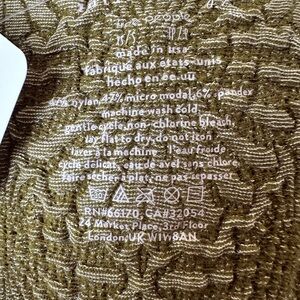 free people
made in usa
fabriqué aux états-unis
hecho en ee.uu
47% nylon, 47% micro modal, 6% spandex
machine wash cold,
gentle cycle, non-chlorine bleach,
lay flat to dry, do not iron
laver à la machine à l'eau froide
cycle délicat, eau de javel sans chlore,
faire sécher à plat, ne pas repasser
RN#66170, CA#32054
24 Market Place, 3rd Floor
London, UK W1W8AN